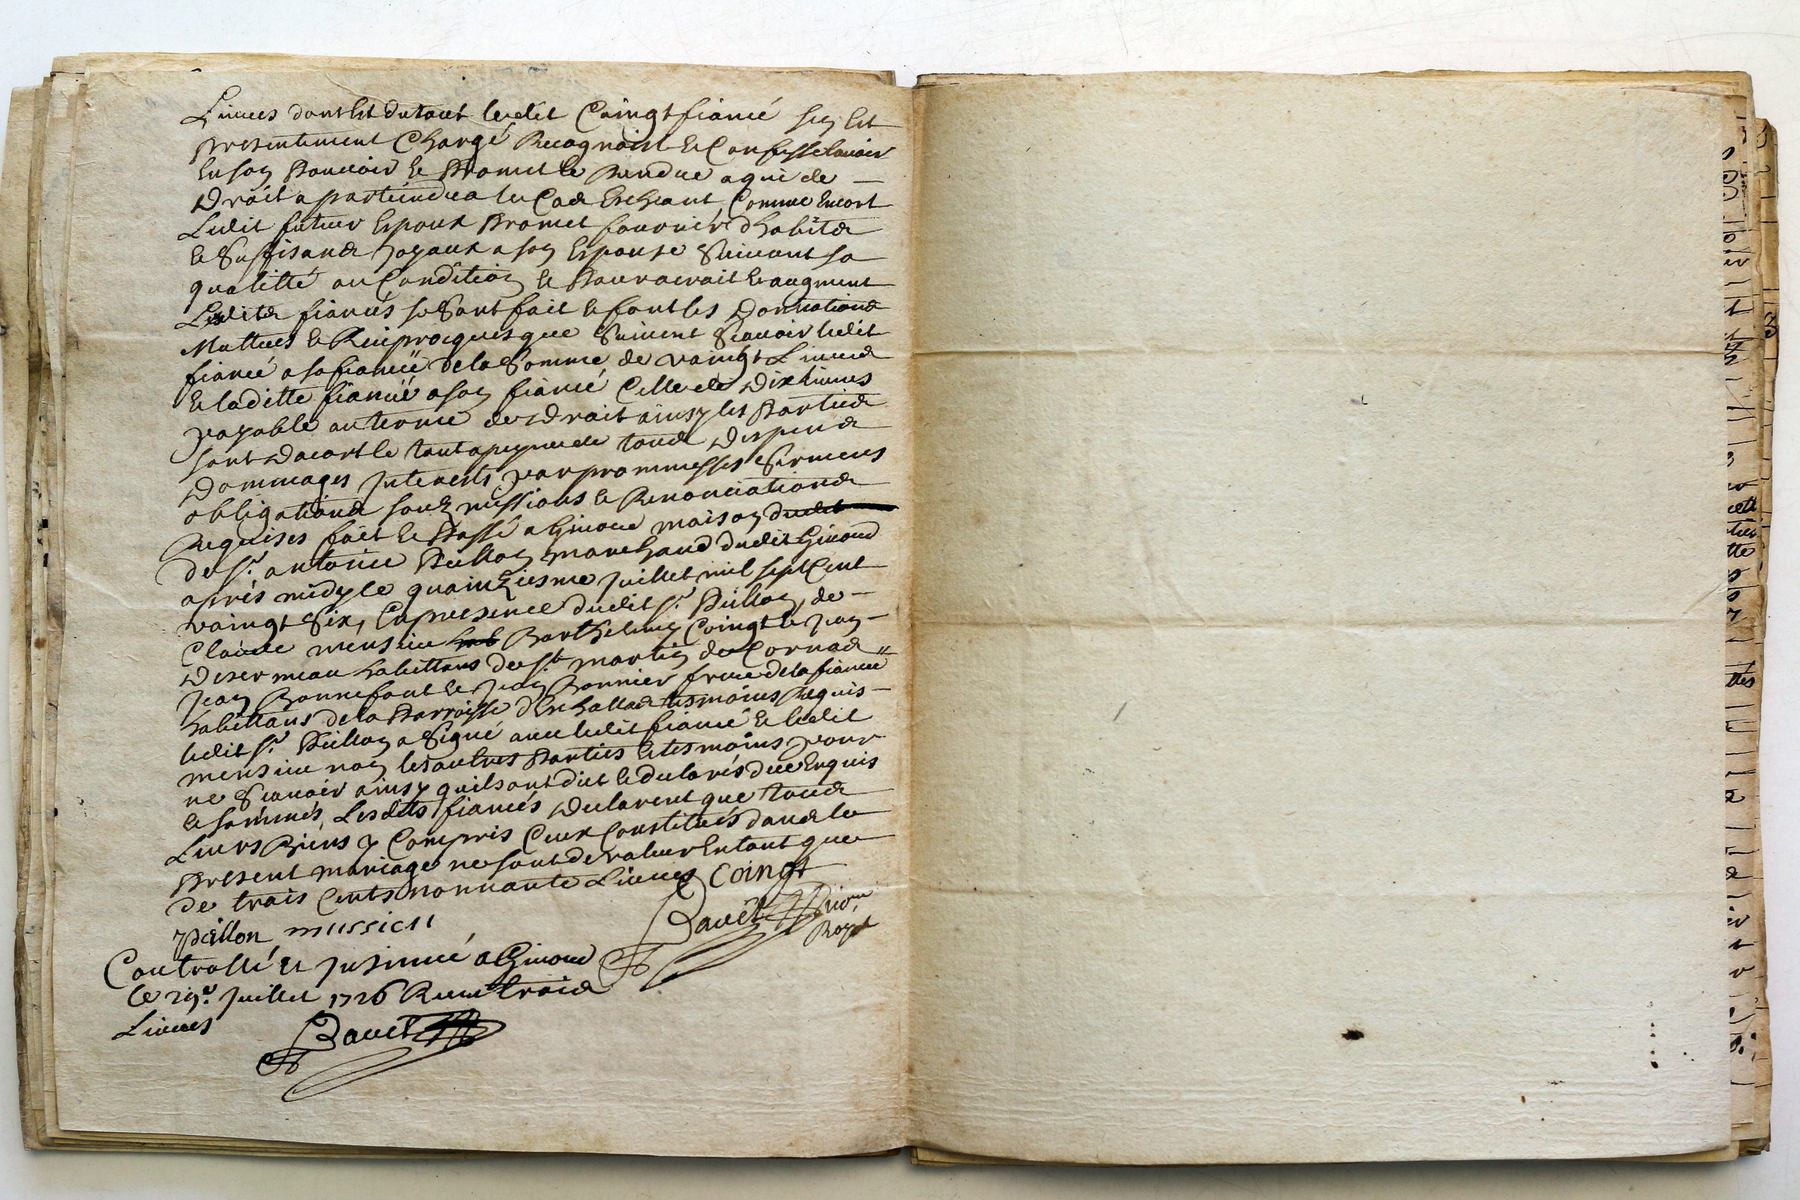 Livres dont Et du tout ledit Coingt fiancé sen Est
presentement Chargé Recognoist & Confesse lavoir
En son Pouvoir & Promet le Rendre a qui de
Droit apartiendra le Cas Escheant Comme Encort
Ledit futeur Espoux Promet fournir d'habits
& Suffisans Joyaux a son Espouse Suivant sa
qualitté ou Condition & Pour acroit & augment
Lesdits fiancés se Sont fait & font les Donnations
Muttues & Reciprocques que Suivent Scavoir ledit
fiancé a sa fiancée de la Somme de vaingt Livres
& laditte fiancée a son fiancé Celle de Dix livres
payable au terme de Droit ainsy les Parties
sont Dacort le tout a peyne de tous Despens
Dommages Interests par prommesses Sermens
obligations soubz missions & Renonciations
Requises fait & Passé a Giroud maison dudit
de sr. antoine Pullon marchand dudit Giroud
après midy le quainziesme Juillet mil sept Cent
vaingt Six, En presence dudit sr. Pullon, de
Claude mensieu Barthelemy Coingt & Jean
habittans de st. martin de Cornas
Jean Bonnefont & Jean Bonnier frere de la fiancée
habittans de la Parroisse tesmoins Requis
ledit sr. Pullon a Signé avec ledit fiancé & ledit
mensieu non les autres Parties & tesmoins pour
ne Scavoir ainsy quils ont dit & declarés de ce Enquis
& sommés, Lesdits fiancés Declarent que tous
Leurs Biens y Compris Ceux Constitués dans le
present mariage ne sont de valeur En tout que
de trois Cents nonnante Livres Coingt
pullon mussieu Bavet
Royal
Controllé & Insinué a Giroud
le 29e. Juillet 1726 Receu trois
Livres
Bavet